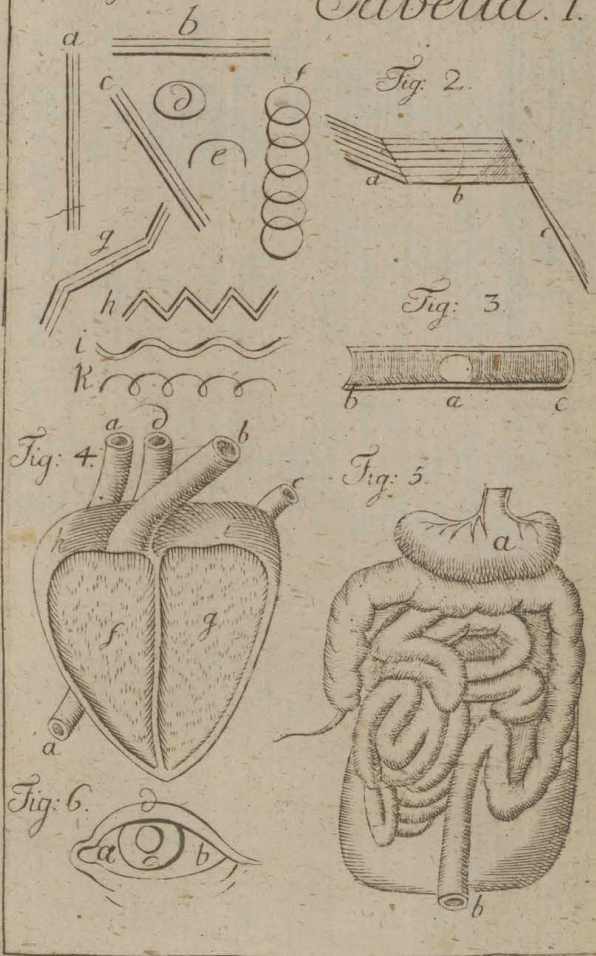 Tabella. I.
a
b
c
d
e
f
g
h
i
k
Fig: 2.
a
b
c
Fig: 3.
b
a
c
Fig: 4.
a
d
b
c
h
i
f
g
a
Fig: 5.
a
b
Fig: 6.
d
a
b